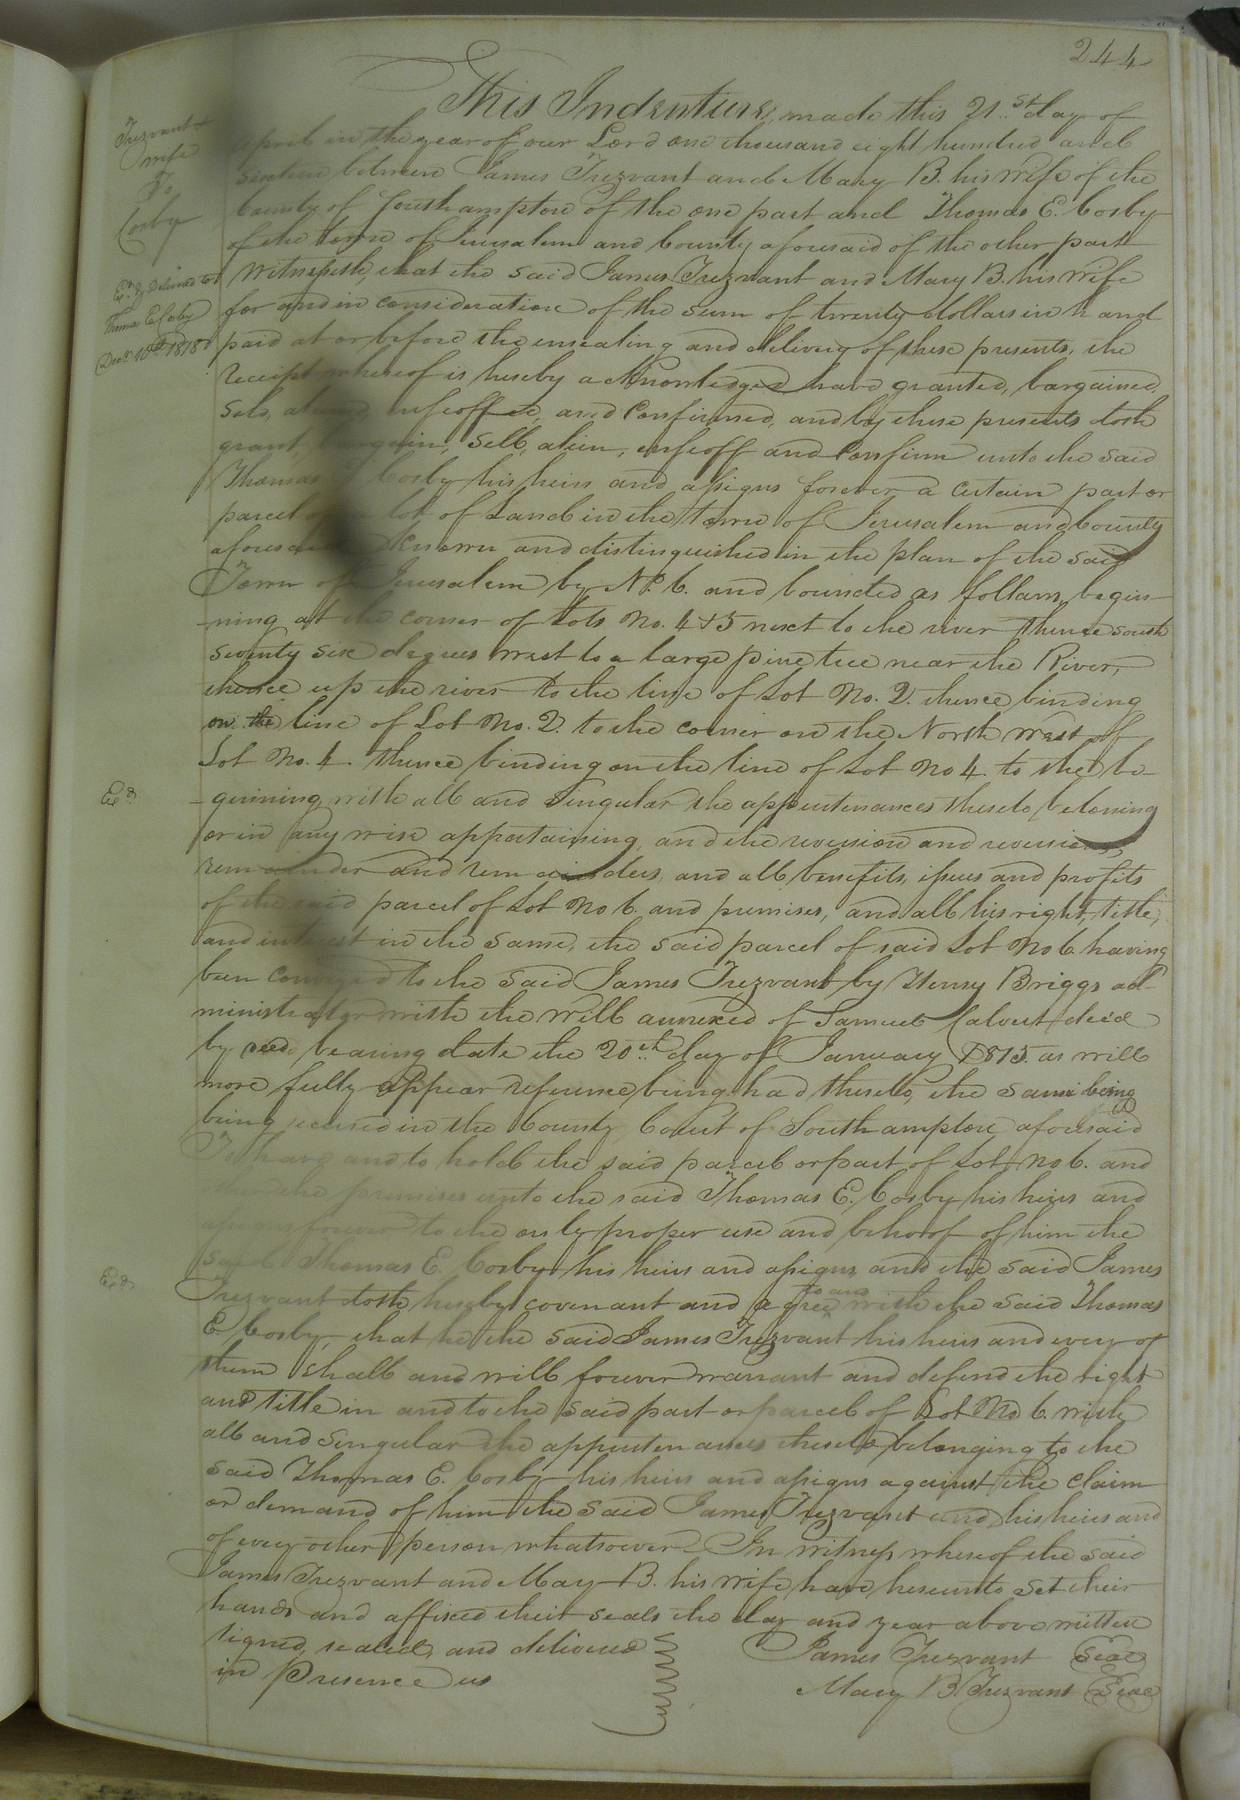 244
This Indenture, made this 21st day of
April in the year of our Lord one thousand eight hundred and
sixteen between James Trezvant and Mary B. his wife of the
County of Southampton of the one part and Thomas E. Cosby
of the town of Jerusalem and County aforesaid of the other part
Witnesseth, that the said James Trezvant and Mary B. his wife
for and in consideration of the sum of twenty dollars in hand
paid at or before the ensealing and delivery of these presents, the
receipt whereof is hereby acknowledged have granted, bargained,
sold, aliened, enfeoffed, and Confirmed, and by these presents doth
grant, bargain, Sell, alien, enfeoff and Confirm unto the said
Thomas E Cosby his heirs and assigns forever a certain part or
parcel of a lot of Land in the town of Jerusalem and County
aforesaid known and distinguished in the plan of the said
Town of Jerusalem by No. 6. and bounded as follows, begin-
-ning at the corner of Lots No. 4 & 5 next to the river thence south
seventy six degrees west to a large pine tree near the River,
thence up the river to the line of Lot No. 2. thence binding
on the line of Lot No. 2. to the corner on the North west of
Lot No. 4. thence binding on the line of Lot No 4. to the be-
-ginning, with all and Singular the appurtenances thereto belonging
or in any wise appertaining, and the reversion and reversions,
remainder and remainders, and all benefits, issues and profits
of the said parcel of Lot No 6. and premises, and all his right, title,
and interest in the same, the said parcel of said Lot No 6. having
been conveyed to the said James Trezvant by Henry Briggs ad-
ministrator with the will annexed of Samuel Calvert dec'd
by deed, bearing date the 20th day of January 1815. as will
more fully appear reference being had thereto, the same being
being recorded in the County Court of Southampton aforesaid
To have and to hold the said parcel or part of Lot No 6. and
other the premises unto the said Thomas E. Cosby his heirs and
assigns forever to the only proper use and behoof of him the
said Thomas E. Cosby his heirs and assigns and the said James
Trezvant doth hereby covenant and agree to and with the said Thomas
E Cosby, that he the said James Trezvant his heirs and every of
them shall and will forever warrant and defend the right
and title in and to the said part or parcel of Lot No 6. with
all and singular the appurtenances thereto belonging to the
said Thomas E. Cosby his heirs and assigns against the claim
or demand of him the said James Trezvant and his heirs and
of every other person whatsoever. In witness whereof the said
James Trezvant and Mary B. his wife have hereunto set their
hands and affixed their seals the day and year above written
signed, sealed, and delivered
in Presence us
James Trezvant Seal
Mary B Trezvant Seal
Trezvant &
wife
To
Cosby
Exd & Delivered to
Thomas E Cosby
Decr 10th 1818
Exd.
Exd.